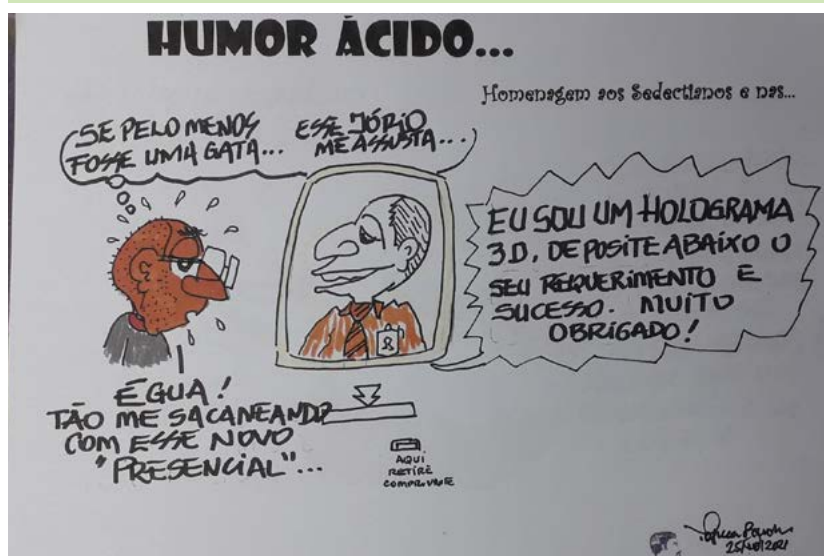 HUMOR ÁCIDO...
Homenagem aos Sedectianos e nas...
SE PELO MENOS
FOSSE UMA GATA...
ESSE JÓRIO
ME ASSUSTA...
EU SOU UM HOLOGRAMA
3D, DEPOSITE ABAIXO O
SEU REQUERIMENTO E
SUCESSO. MUITO
OBRIGADO!
ÉGUA!
TÃO ME SACANEANDO
COM ESSE NOVO
"PRESENCIAL"...
AQUI
RETIRE
25/10/2021